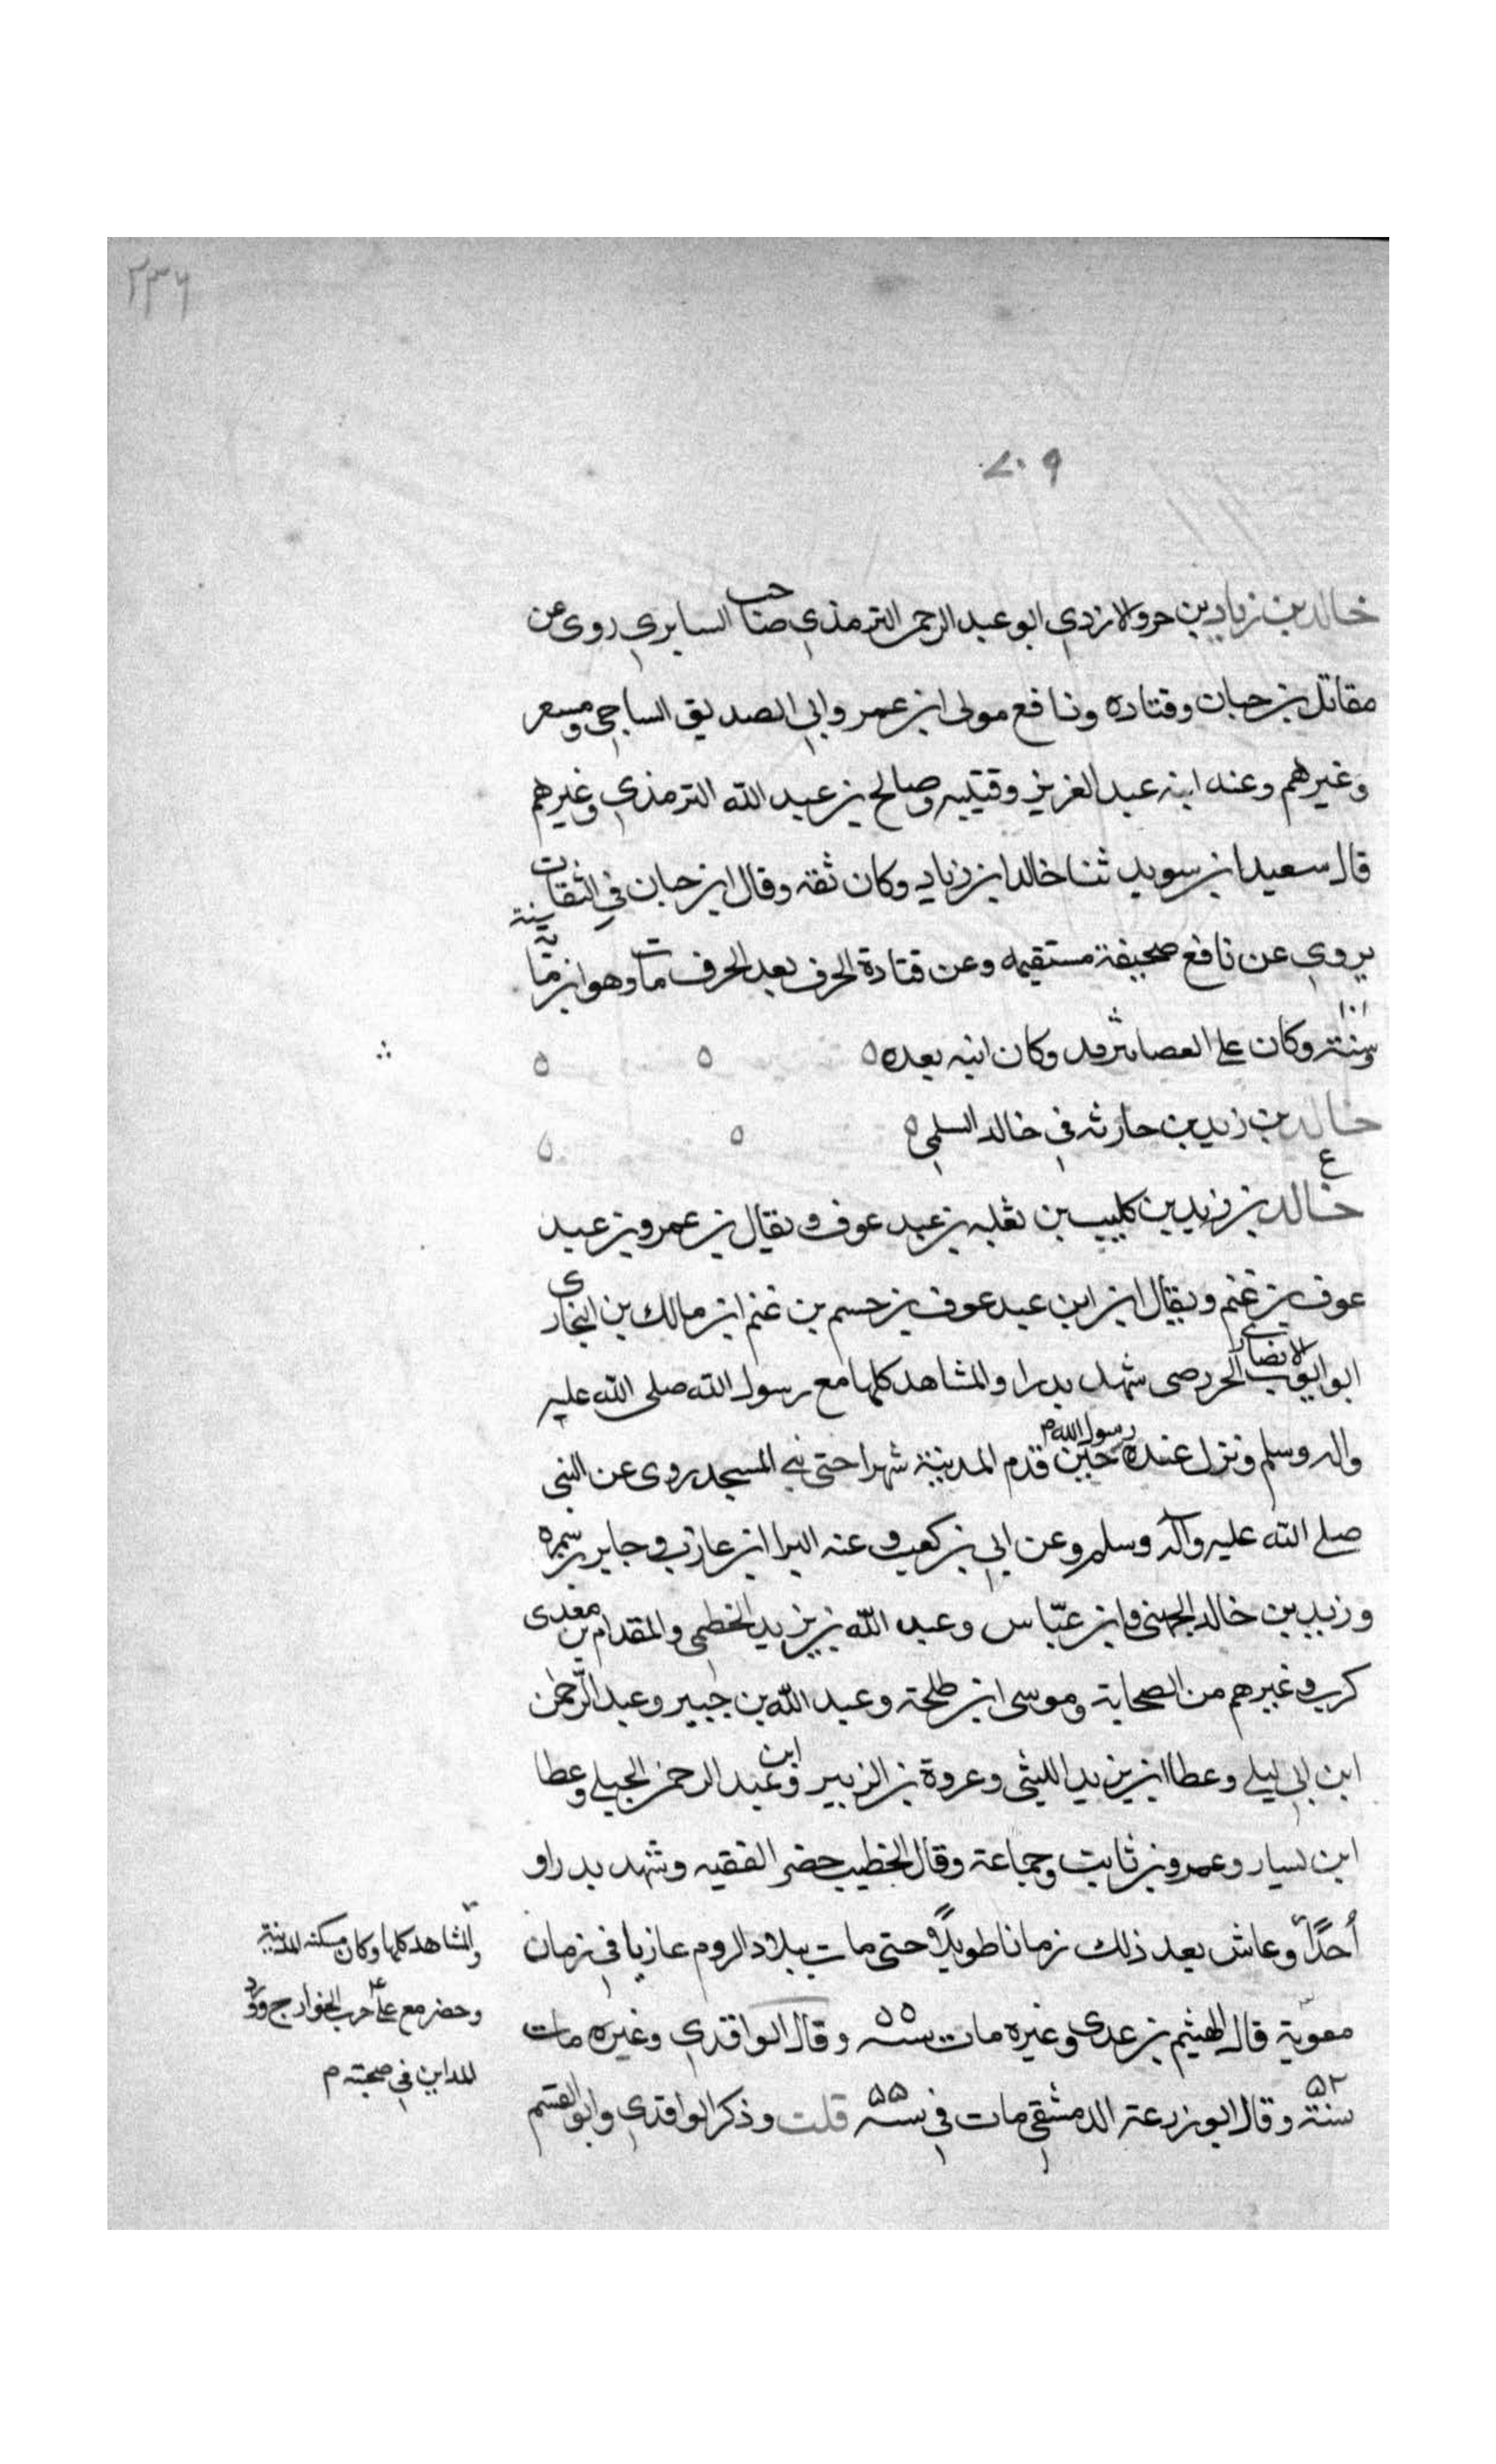 ٢٣٦
٧٠٩
خالد بن زياد بن جرو الازدي ابو عبد الرحمن الترمذي صاحب السابري روى عن
مقاتل بن حيان وقتاده ونافع مولى ابن عمر وابي الصديق الساجي ومسعر
وغيرهم وعنه ابنه عبد العزيز وقتيبه وصالح بن عبد الله الترمذي وغيرهم
قال سعيد ابن سويد ثنا خالد ابن زياد وكان ثقه وقال ابن حبان في الثقات
يروي عن نافع صحيفة مستقيمه وعن قتادة الحرف بعد الحرف مات وهو ابن مائة سنة
وسنة وكان على القضا وكان ابنه بعده
خالد بن زيد بن حارثه في خالد السلمي
ع
خالد بن زيد بن كليب بن ثعلبه بن عبد عوف ويقال بن عمرو بن عبد
عوف بن غنم ويقال ابن ابن عبد عوف بن جسم بن غنم ابن مالك بن النجاري
ابو ايوب الانصاري الخزرجي شهد بدرا والمشاهد كلها مع رسول الله صلى الله عليه
واله وسلم ونزل عنده رسول الله م حين قدم المدينة شهرا حتى بنى المسجد روى عن النبي
صلى الله عليه وآله وسلم وعن ابي بن كعب وعنه البرا ابن عازب وجابر بن سمره
وزيد بن خالد الجهني وابن عبّاس وعبد الله بن يزيد الخطمي والمقدام بن معدي
كرب وغيرهم من الصحابة وموسى ابن طلحة وعبد الله بن جبير وعبد الرّحمن
ابن ابي ليلى وعطا ابن يزيد الليثي وعروة بن الزبير وابن عبد الرحمن الجبلي وعطا
ابن يسار وعمرو بن ثابت وجماعة وقال الخطيب حضر العقبه وشهد بدرا و
أحدًا وعاش بعد ذلك زمانا طويلًا حتى مات ببلاد الروم غازيا في زمان
معوية قال الهيثم بن عدي وغيره مات سنة ٥٥ وقال الواقدي وغيره مات
سنة ٥٢ وقال ابو زرعة الدمشقي مات في سنة ٥٥ قلت وذكر الواقدي وابو القسم
والمشاهد كلها وكان مسكنه المدينة
وحضر مع علي حرب الخوارج وورد
المداين في صحبته م